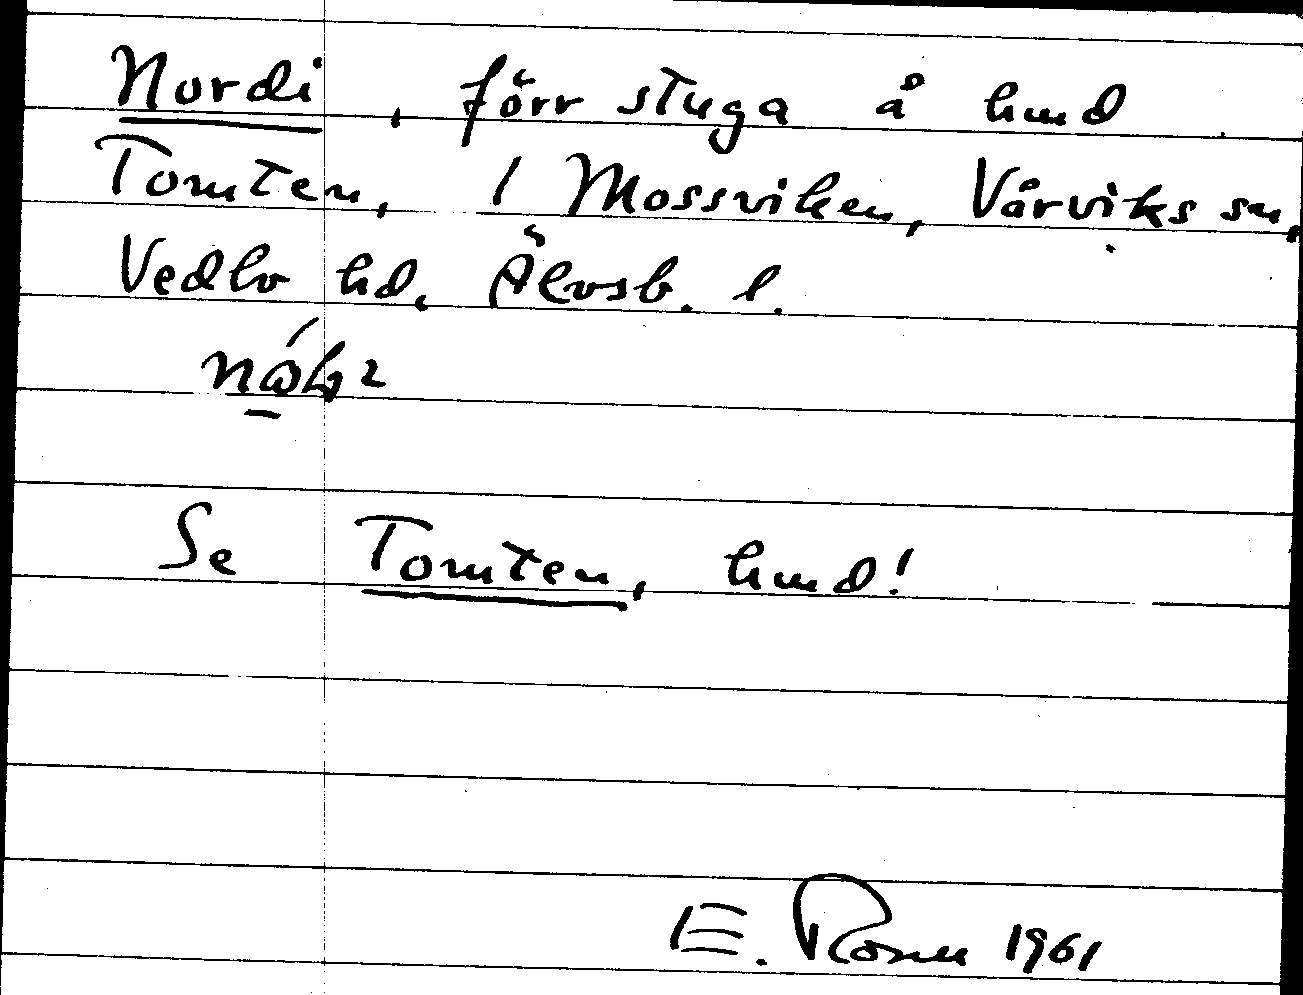 Nordi, förr stuga å hmd
Tomten, 1 Mossviken, Vårviks sn,
Vedbo hd, Älvsb. l.
Se Tomten, hmd!
E. Rosen 1961